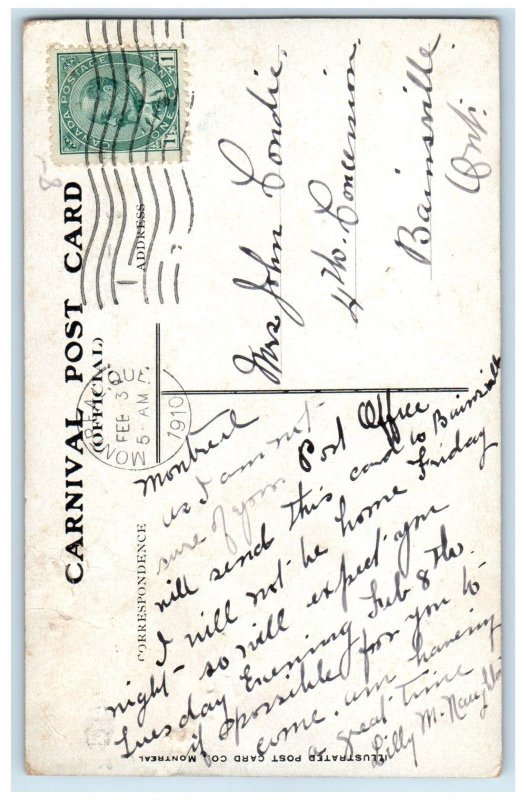 CANADA POSTAGE
ONE CENT
1 1
CARNIVAL POST CARD
(OFFICIAL)
ADDRESS
MONTREAL, QUE.
FEB 3
5- AM
1910
Mrs John Condie,
4th. Concession
Bainsville
Ont.
CORRESPONDENCE
Montreal
as I am not
sure of your Post Office
will send this card to Bainsville
I will not be home Friday
night - so will expect you
Tuesday Evening Feb 8th
if possible for you to
come. am having
a great time
Lilly McNaughton
ILLUSTRATED POST CARD CO. MONTREAL
8